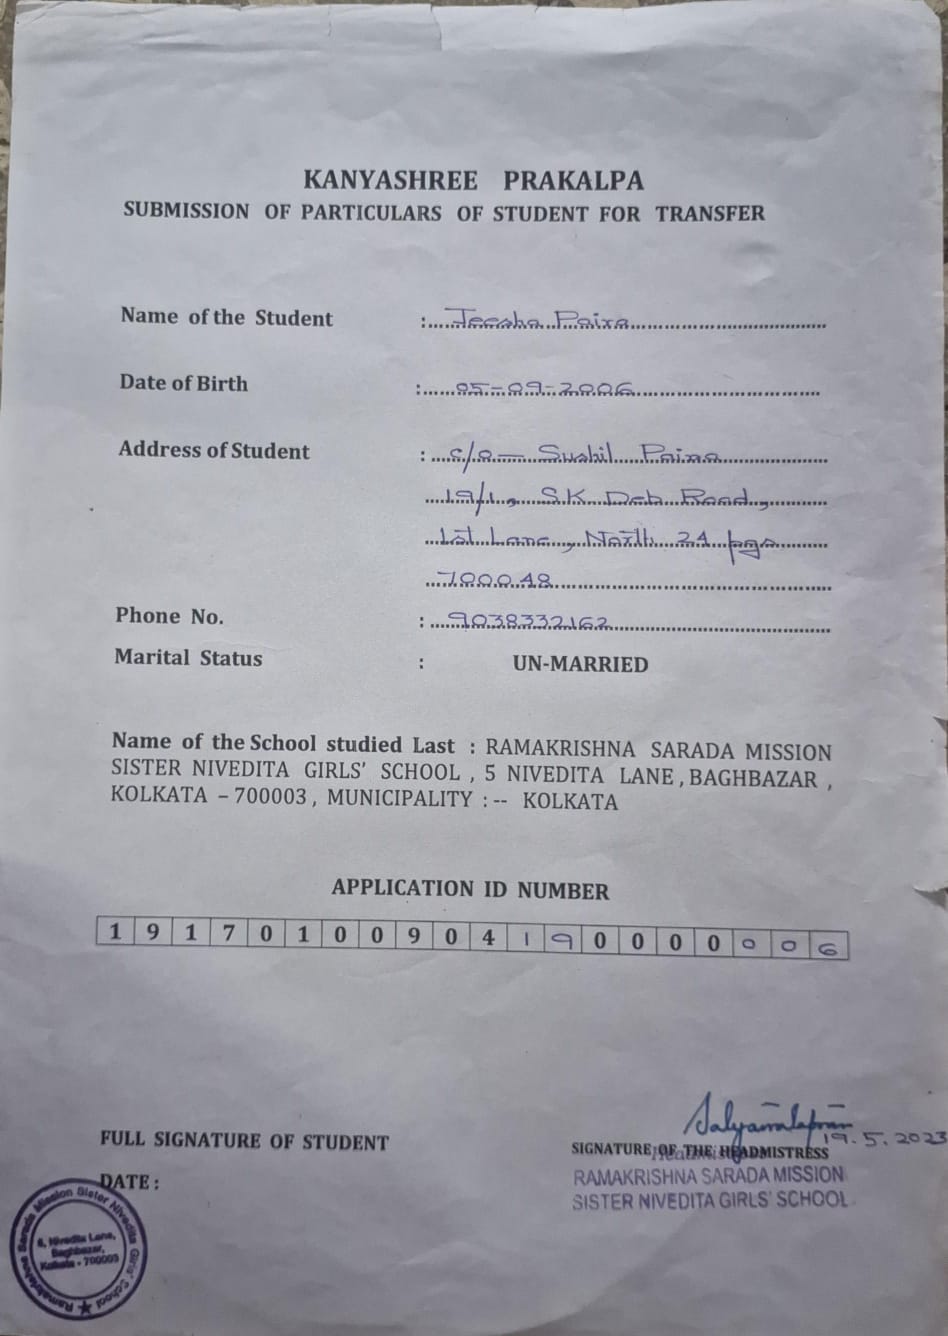 KANYASHREE PRAKALPA
SUBMISSION OF PARTICULARS OF STUDENT FOR TRANSFER
Name of the Student : Jeesha Paira
Date of Birth : 05-09-2006
Address of Student : c/o - Sushil Paira
19/1, S.K Deb Road,
1st Lane, North 24 pgs
700048
Phone No. : 9038332162
Marital Status : UN-MARRIED
Name of the School studied Last : RAMAKRISHNA SARADA MISSION
SISTER NIVEDITA GIRLS' SCHOOL , 5 NIVEDITA LANE , BAGHBAZAR ,
KOLKATA – 700003 , MUNICIPALITY : -- KOLKATA
APPLICATION ID NUMBER
1 9 1 7 0 1 0 0 9 0 4 1 9 0 0 0 0 0 0 6
19.5.2023
FULL SIGNATURE OF STUDENT
SIGNATURE OF THE HEADMISTRESS
Headmistress
DATE :
RAMAKRISHNA SARADA MISSION
SISTER NIVEDITA GIRLS' SCHOOL
Ramakrishna Sarada Mission Sister Nivedita Girls' School
5, Nivedita Lane,
Baghbazar,
Kolkata - 700003